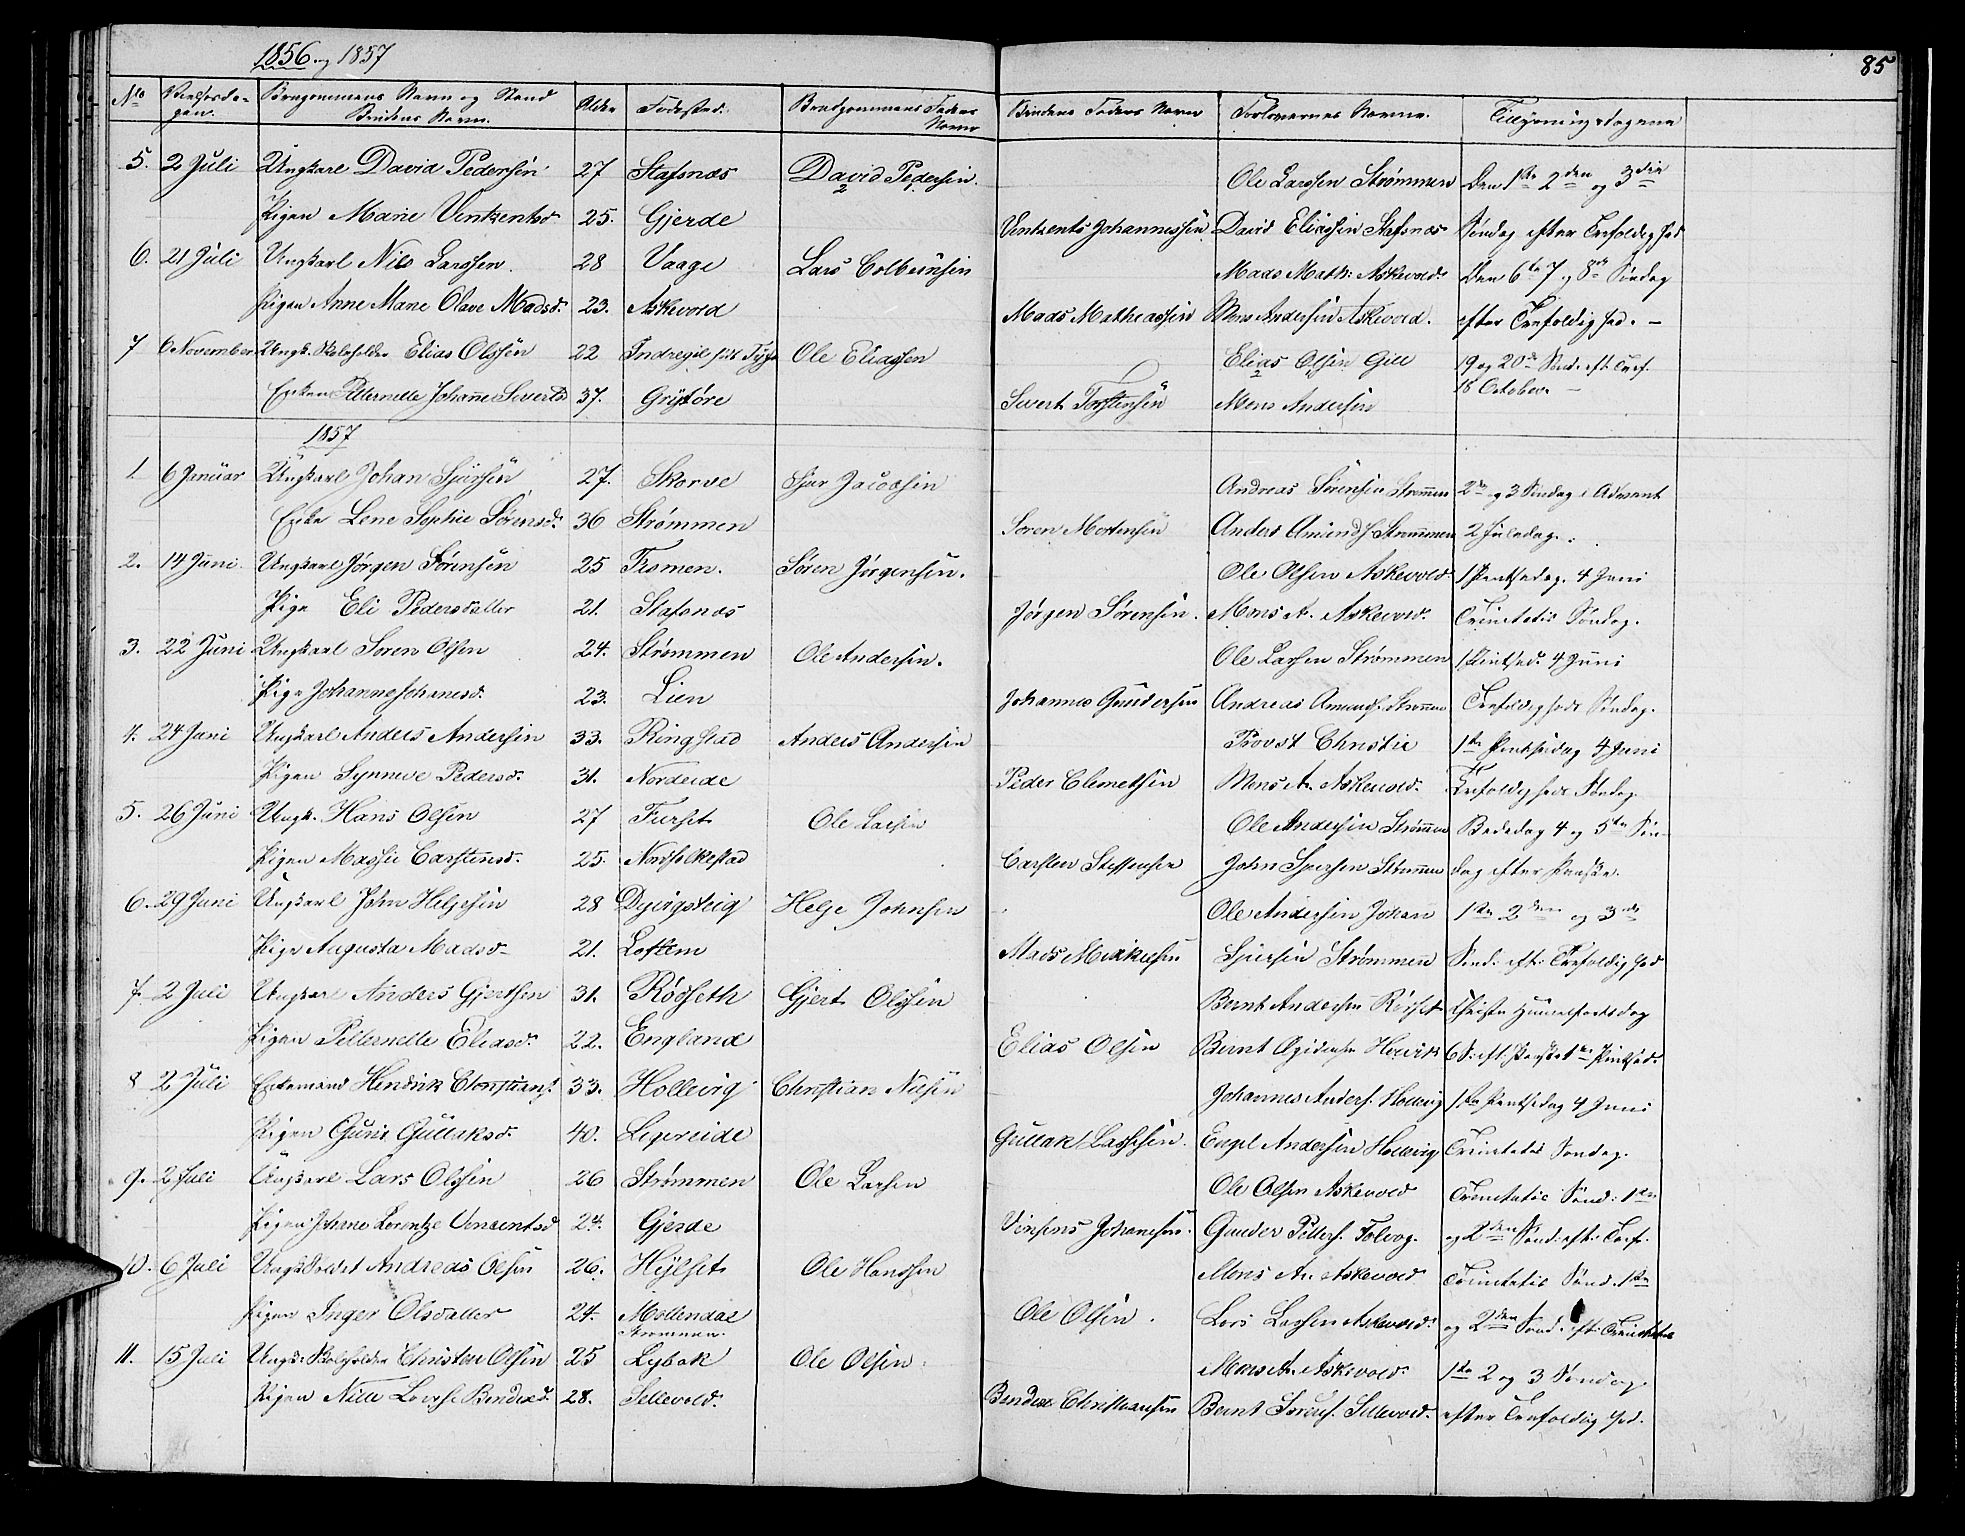 1856 og 1857
85
No Vielsesda- Brudgommens Navn og Stand Alder Fødested. Brudgommens Faders Brudens Faders Navn Forlovernes Navne. Tillysningsdagene
gen. Brudens Navn. Navn
5. 2 Juli Ungkarl David Pedersen 27 Stafsnæs David Pedersen. Ole Larssen Strømmen Den 1ste 2den og 3die
Pigen Marie Ventzentsd. 25. Gjerde Ventzents Johannessen David Eliassen Stafsnæs Søndag efter Trefoldighed
6. 21 Juli Ungkarl Nils Larssen. 28 Vaage Lars Colbensen Mads Math: Askevold. Den 6te 7 og 8de Søndag
Pigen Anne Marie Olave Madsd. 23. Askevold Mads Mathiassen Mons Andersen Askevold. efter Trefoldighed. —
7 6 November Ungk. Elias Olssen 22 Ole Eliassen Elias Olsen Gill 19 og 20de Sønd. eft. Tref.
Enken Petternelle Johanne Sivertsd 37. Grytøre Sivert Torstensen Mons Andersen 18 October —
1857
1. 6 Januar Ungkarl Johan Sjursen 27. Skorve Sjur Jacobsen Andreas Sørensen Strømmen 2de og 3 Søndag i Advent
Enke Lene Sophie Sørensd. 36 Strømmen Søren Mortensen Anders Amunds. Strømmen 2 Juledag.
2. 14 Juni Ungkarl Jørgen Sørensen 25 Tromen. Søren Jørgensen. Ole Olsen Askevold 1 Pintsedag. 4 Juni
Pige Eli Pedersdatter 21. Stafsnæs Jørgen Sørensen. Mons A. Askevold. Trinitatis Søndag.
3. 22 Juni Ungkarl Søren Olsen 24. Strømmen Ole Andersen. Ole Larsen Strømmen 1 Pintsed. 4 Juni
Pige Johanne Johannesd. 23. Lien Johannes Gundersen Andreas Amunds. Strømmen Trefoldigheds Søndag.
4. 24 Juni Ungkarl Anders Andersen 33. Ringstad Anders Andersen Provst Christie 1ste Pintsedag 4 Juni
Pigen Synneve Pedersd. 31. Nordeide Peder Clemetsen Mons A. Askevold. Trefoldigheds Søndag
5. 26 Juni Ungk. Hans Olsen 27 Furset Ole Larsen Ole Andersen Strømmen Bededag 4 og 5te Søn-
Pigen Massie Carstensd. 25. Nordfolkestad Carsten Steffensen John Sjursen Strømmen dag efter Paaske.
6. 29 Juni Ungkarl John Helgesen 28 Helge Johnsen Ole Andersen Johan 1ste 2den og 3die
Pige Augusta Madsd. 21. Loftem Mads Mikkelsen Sjursen Strømmen Sønd. eft. Trefoldighed
7. 2 Juli Ungkarl Anders Gjertsen 31. Rødseth Gjert Olssen Bernt Andersen Rødset Christi Himmelfartsdag
Pigen Petternelle Eliasd. 22. England Elias Olsen Bernt Hovik 6 S. eft. Paaske 1ste Pintsed.
8 2 Juli Enkemand Hendrik Christians. 33. Hollevig Christian Nilsen Johannes Anders. Hollevig 1ste Pintsedag 4 Juni
Pigen Guri Gullaksd. 40. Ligereide Gullak Lassesen. Engel Andersen Hollevig Trinitatis Søndag.
9. 2 Juli Ungkarl Lars Olssen 26 Strømmen Ole Larsen Ole Olsen Askevold Trinitatis Sønd: 1ste
Pigen Johane Lorentze Vensentsd 24. Gjerde Vinsens Johanesen. Gunder Petters. Folvog. og 2den Sønd. eft. Tref.
10. 6 Juli Ungk Soldat Andreas Olsen 26. Hylset Ole Hanssen Mons A. Askevold Trinitatis Sønd. 1ste
Pigen Inger Olsdatter 24. Møllendal Ole Olsen. Lars Larsen Askevold. og 2den Sønd. eft. Trinitatis
Strømmen.
11. 15 Juli Ungk. Christen Olsen 25 Lybak Ole Olsen. Mons A. Askevold. 1ste 2 og 3 Søndag
Pigen Bendixd. 28. Sellevold. Bendix Christiansen Bernt Sellevold. efter Trefoldighed.